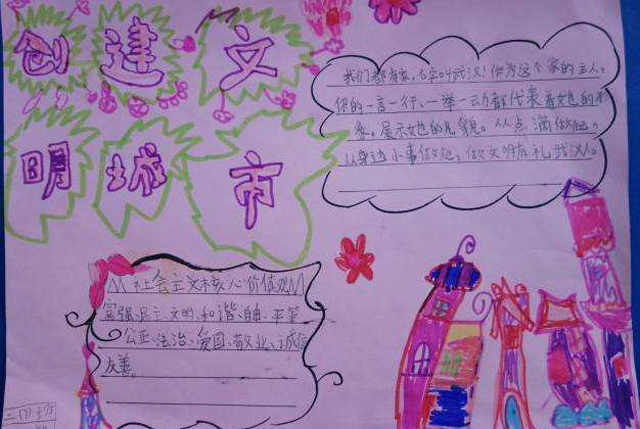 创建文
明城市
我们都有家，名字叫武汉！作为这个家的主人，
您的一言一行、一举一动都代表着她的形
象。展示她的风貌。从点滴做起，
从身边小事做起，做文明有礼武汉人。
社会主义核心价值观
富强、民主、文明、和谐、自由、平等
公正、法治、爱国、敬业、诚信
友善。